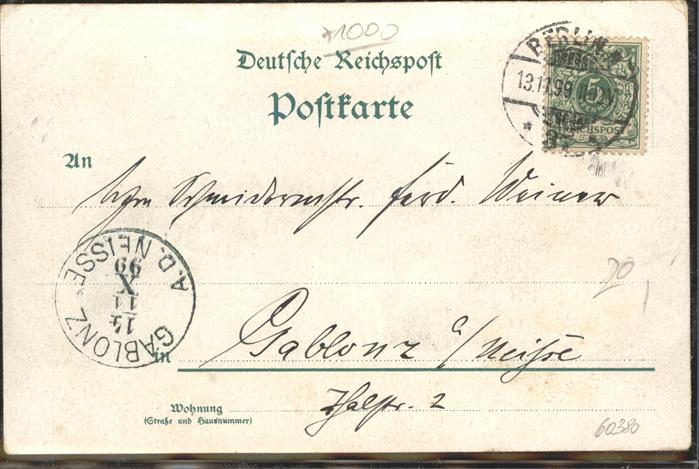 1000
Deutsche Reichspost
Postkarte
BERLIN
13.11.99
5
REICHSPOST
An
Schneidermstr. Ferd. Weiner
GABLONZ A.D. NEISSE
14
11
X
99
in Gablonz a/Neisse
Wohnung
(Straße und Hausnummer)
Thalstr. 2
20
60380